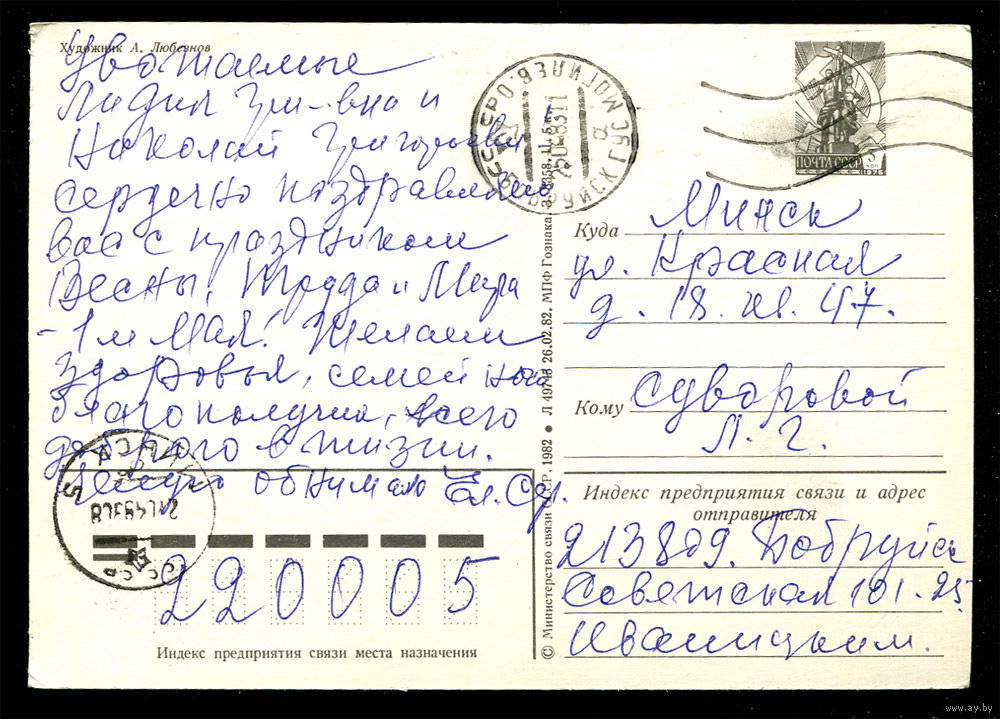 Художник А. Любезнов
Уважаемые
Лидия Григ-вна и
Николай Григорьевич
сердечно поздравляем
вас с праздником
Весны, Труда и Мира
- 1м Мая! Желаем
здоровья, семейного
благополучия, всего
доброго в жизни.
обнимаю
ПОЧТА СССР 3 коп
1976
Куда Минск
ул. Красная
д. 18. кв. 47.
Кому Суворовой
Л. Г.
Индекс предприятия связи и адрес
отправителя
213809. Бобруйск
Советская 101-25
Иваницким.
220005
Индекс предприятия связи места назначения
© Министерство связи СССР. 1982 • Л 49743 26.02.82. МПФ Гознака.
МИНСК 5
СССР
www.ay.by